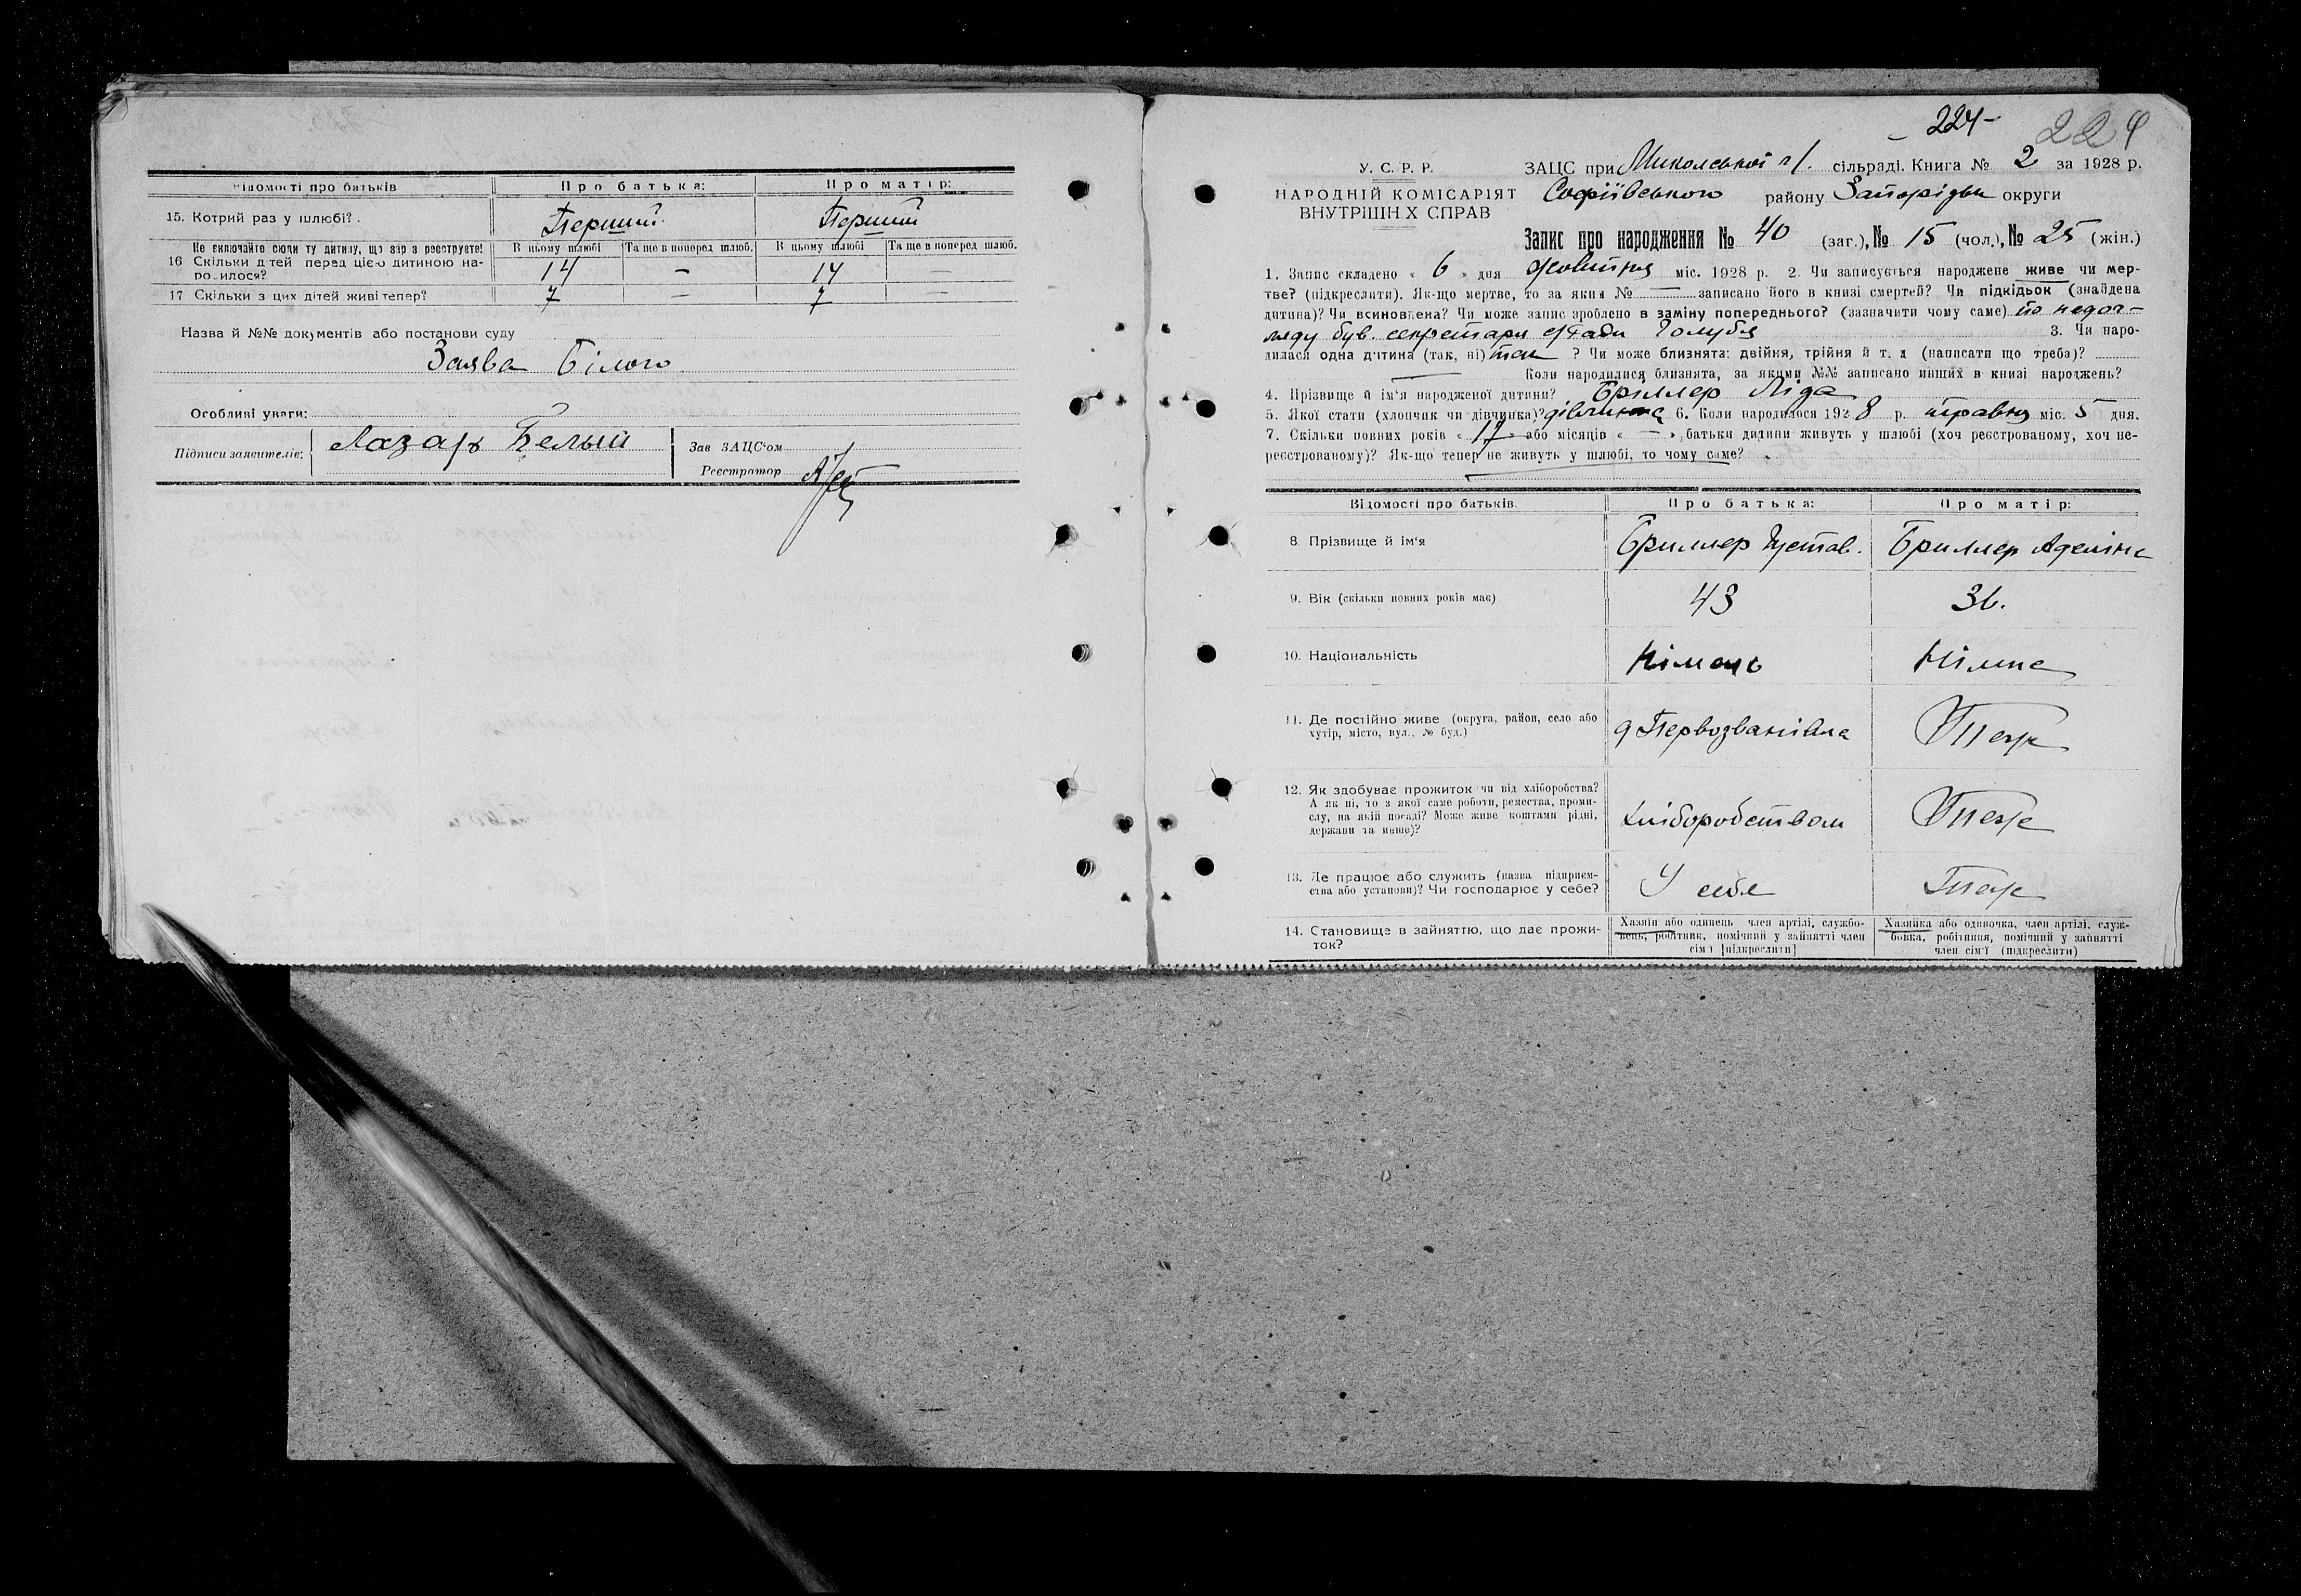 Відомости про батьків Про батька: Про матір:
15. Котрий раз у шлюбі? Перший Перший
Не включайте сюди ту дитину, що зар з реєструєте! В цьому шлюбі Та ще в поперед. шлюб. В цьому шлюбі Та ще в поперед. шлюб.
16 Скільки дітей перед цією дитиною на-
родилося? 14 — 14 —
17 Скільки з цих дітей живі тепер? 7 — 7 —
Назва й №№ документів або постанови суду
Заява Білого
Особливі уваги:
Підписи заявителів: Лазарь Белый Зав ЗАЦС'ом
Реєстратор
- 224 - 224
У. С. Р. Р. ЗАЦС при Миколської сільраді. Книга № 2 за 1928 р.
НАРОДНІЙ КОМІСАРІЯТ Софіївського району Запорізьк округи
ВНУТРІШНІХ СПРАВ
Запис про народження № 40 (заг.), № 15 (чол.), № 25 (жін.)
1. Запис складено « 6 » дня Жовтня міс. 1928 р. 2. Чи записується народжене живе чи мер-
тве? (підкреслити). Як-що мертве, то за яким № — записано його в книзі смертей? Чи підкідьок (знайдена
дитина)? Чи всиновлена? Чи може запис зроблено в заміну попереднього? (зазначити чому саме) по недог-
ляду був. секретаря с/ради Голубя 3. Чи наро-
дилася одна дитина (так, ні) так ? Чи може близнята: двійня, трійня й т. д (написати що треба)?
— Коли народилися близнята, за якими №№ записано инших в книзі народжень?
4. Прізвище й ім'я народженої дитини? Бріллер Ліда
5. Якої стати (хлопчик чи дівчинка)? дівчинка 6. Коли народилося 1928 р. травня міс. 5 дня.
7. Скільки повних років « 17 » або місяців « — » батьки дитини живуть у шлюбі (хоч реєстрованому, хоч не-
реєстрованому)? Як-що тепер не живуть у шлюбі, то чому саме?
Відомості про батьків. Про батька: Про матір:
8 Прізвище й ім'я Бриллер Густав. Бриллер Аделіна
9. Вік (скільки повних років має) 43 36.
10. Національність Німець Німка
11. Де постійно живе (округа, район, село або
хутір, місто, вул., № буд.) Первозванівка Теж
12. Як здобуває прожиток чи від хліборобства?
А як ні, то з якої саме роботи, ремества, проми-
слу, на якій посаді? Може живе коштами рідні,
держави та инше)? Хліборобством Теж
13. Де працює або служить (назва підприєм-
ства або установи)? Чи господарює у себе? У себе Теж
14. Становище в зайняттю, що дає прожи-
ток?
Хазяїн або одинець член артілі, службо-
вець, робітник, помічний у зайнятті член
сім'ї [підкреслити]
Хазяйка або одиночка, член артілі, служ-
бовка, робітниця, помічний у зайнятті
член сім'ї (підкреслити)